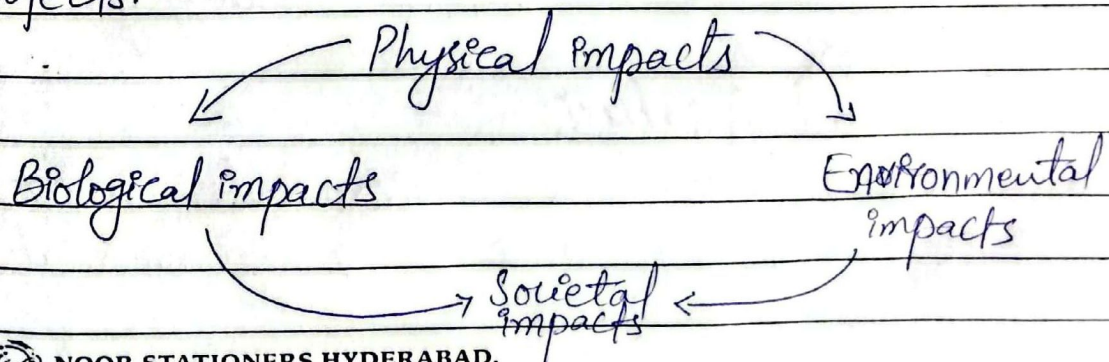 Physical impacts
Biological impacts
Environmental
impacts
Societal
impacts
NOOR STATIONERS HYDERABAD.